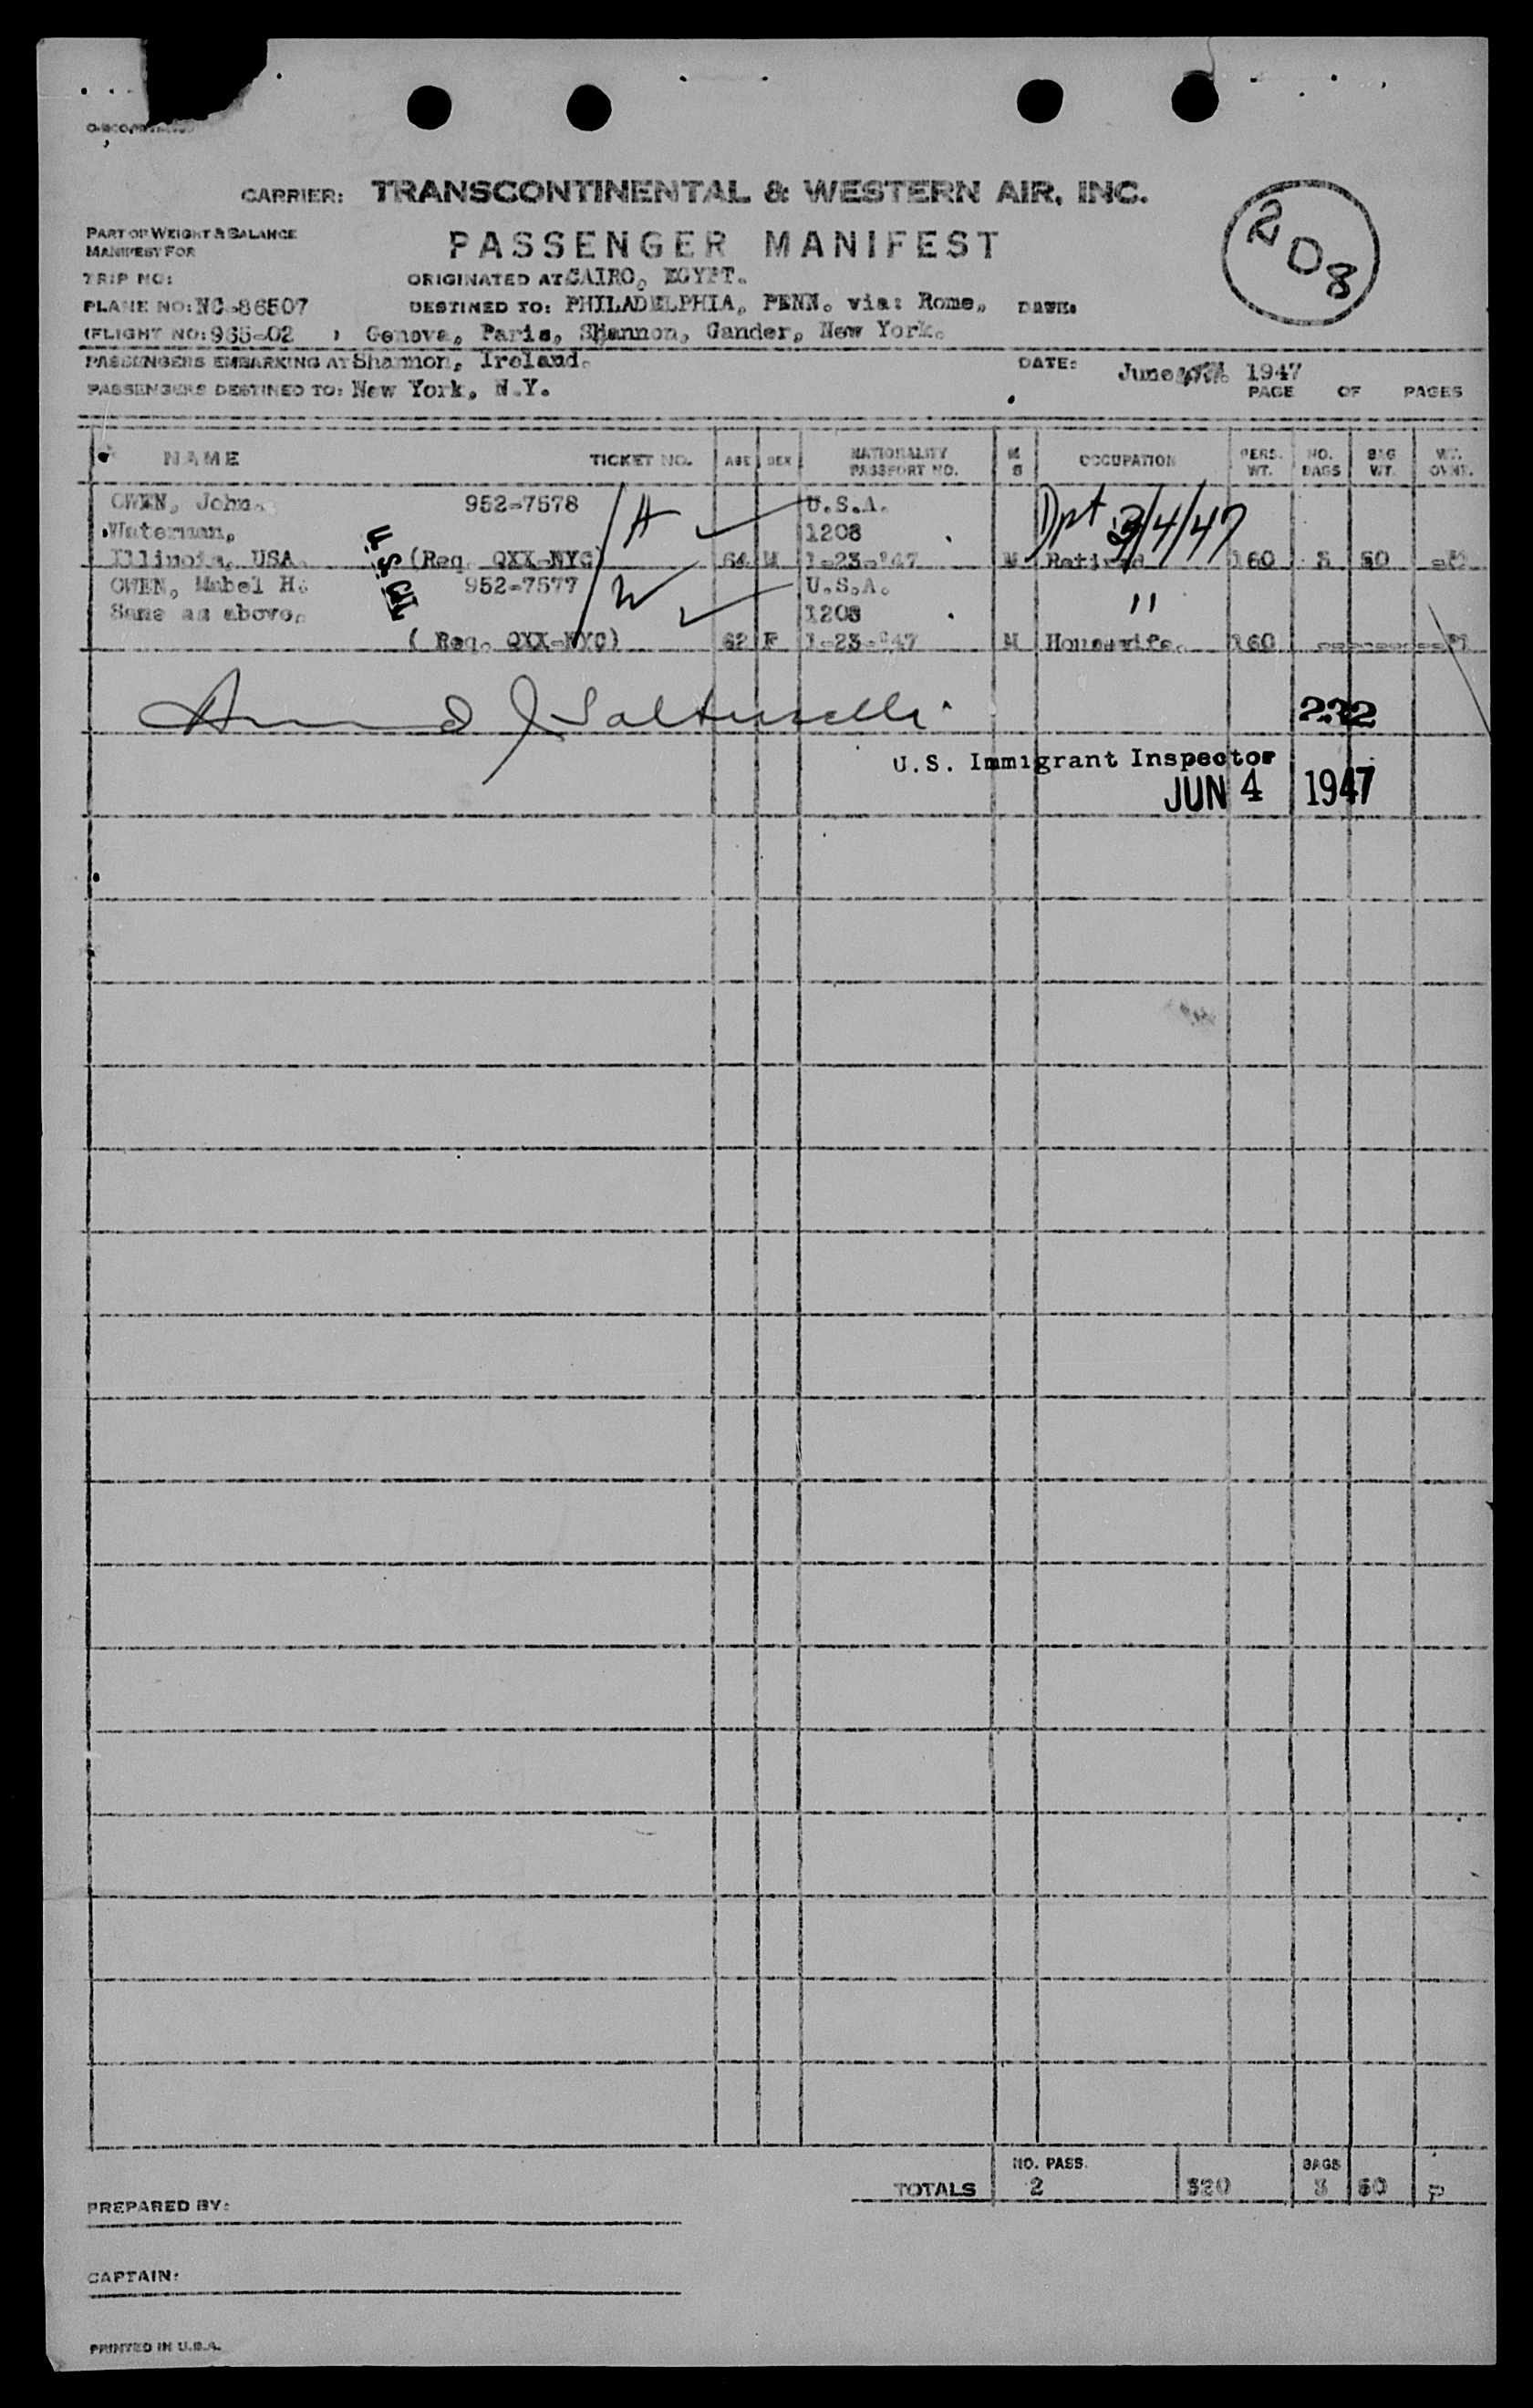 CARRIER: TRANSCONTINENTAL & WESTERN AIR, INC.
PART OF WEIGHT & BALANCE
MANIFEST FOR
PASSENGER MANIFEST
208
TRIP NO:
ORIGINATED AT CAIRO, EGYPT.
PLANE NO: NC-86507
DESTINED TO: PHILADELPHIA, PENN. via: Rome, DATE:
(FLIGHT NO: 965-02 ) Geneva, Paris, Shannon, Gander, New York.
PASSENGERS EMBARKING AT Shannon, Ireland.
DATE: June 1947
PASSENGERS DESTINED TO: New York, N.Y.
PAGE OF PAGES
NAME TICKET NO. AGE SEX NATIONALITY PASSPORT NO. M S OCCUPATION PERS. WT. NO. BAGS BAG WT. WT. OVWT.
OWEN, John. 952-7578 H U.S.A. Dpt 3/4/47
Waterman, 1208
Illinois, USA. (Req. QXX-NYC) 64 M 1-23-'47 M Retired 160 3 50
U.S. CIT
OWEN, Mabel H. 952-7577 W U.S.A.
Same as above. 1208 "
( Req. QXX-NYC) 62 F 1-23-'47 M Housewife. 160
232
U.S. Immigrant Inspector
JUN 4 1947
TOTALS NO. PASS. 2 320 BAGS 3 50
PREPARED BY:
CAPTAIN:
PRINTED IN U.S.A.